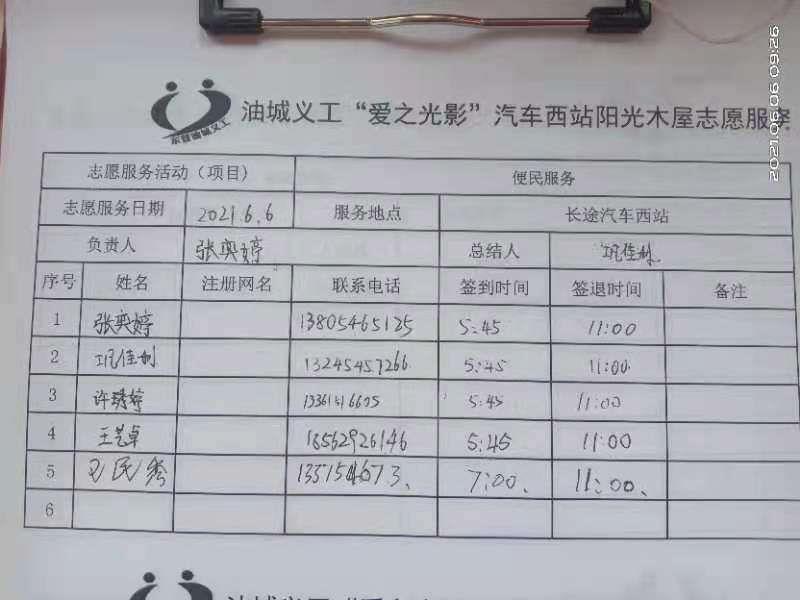 2021.06.06 09:26
油城义工“爱之光影”汽车西站阳光木屋志愿服务
东营油城义工
志愿服务活动（项目） 便民服务
志愿服务日期 2021.6.6 服务地点 长途汽车西站
负责人 张奕婷 总结人 巩佳彬
序号 姓名 注册网名 联系电话 签到时间 签退时间 备注
1 张奕婷 13805465125 5:45 11:00
2 巩佳彬 13245457266 5:45 11:00
3 许琇婷 5:45 11:00
4 王艺卓 18562926146 5:45 11:00
5 民秀 7:00、 11:00、
6